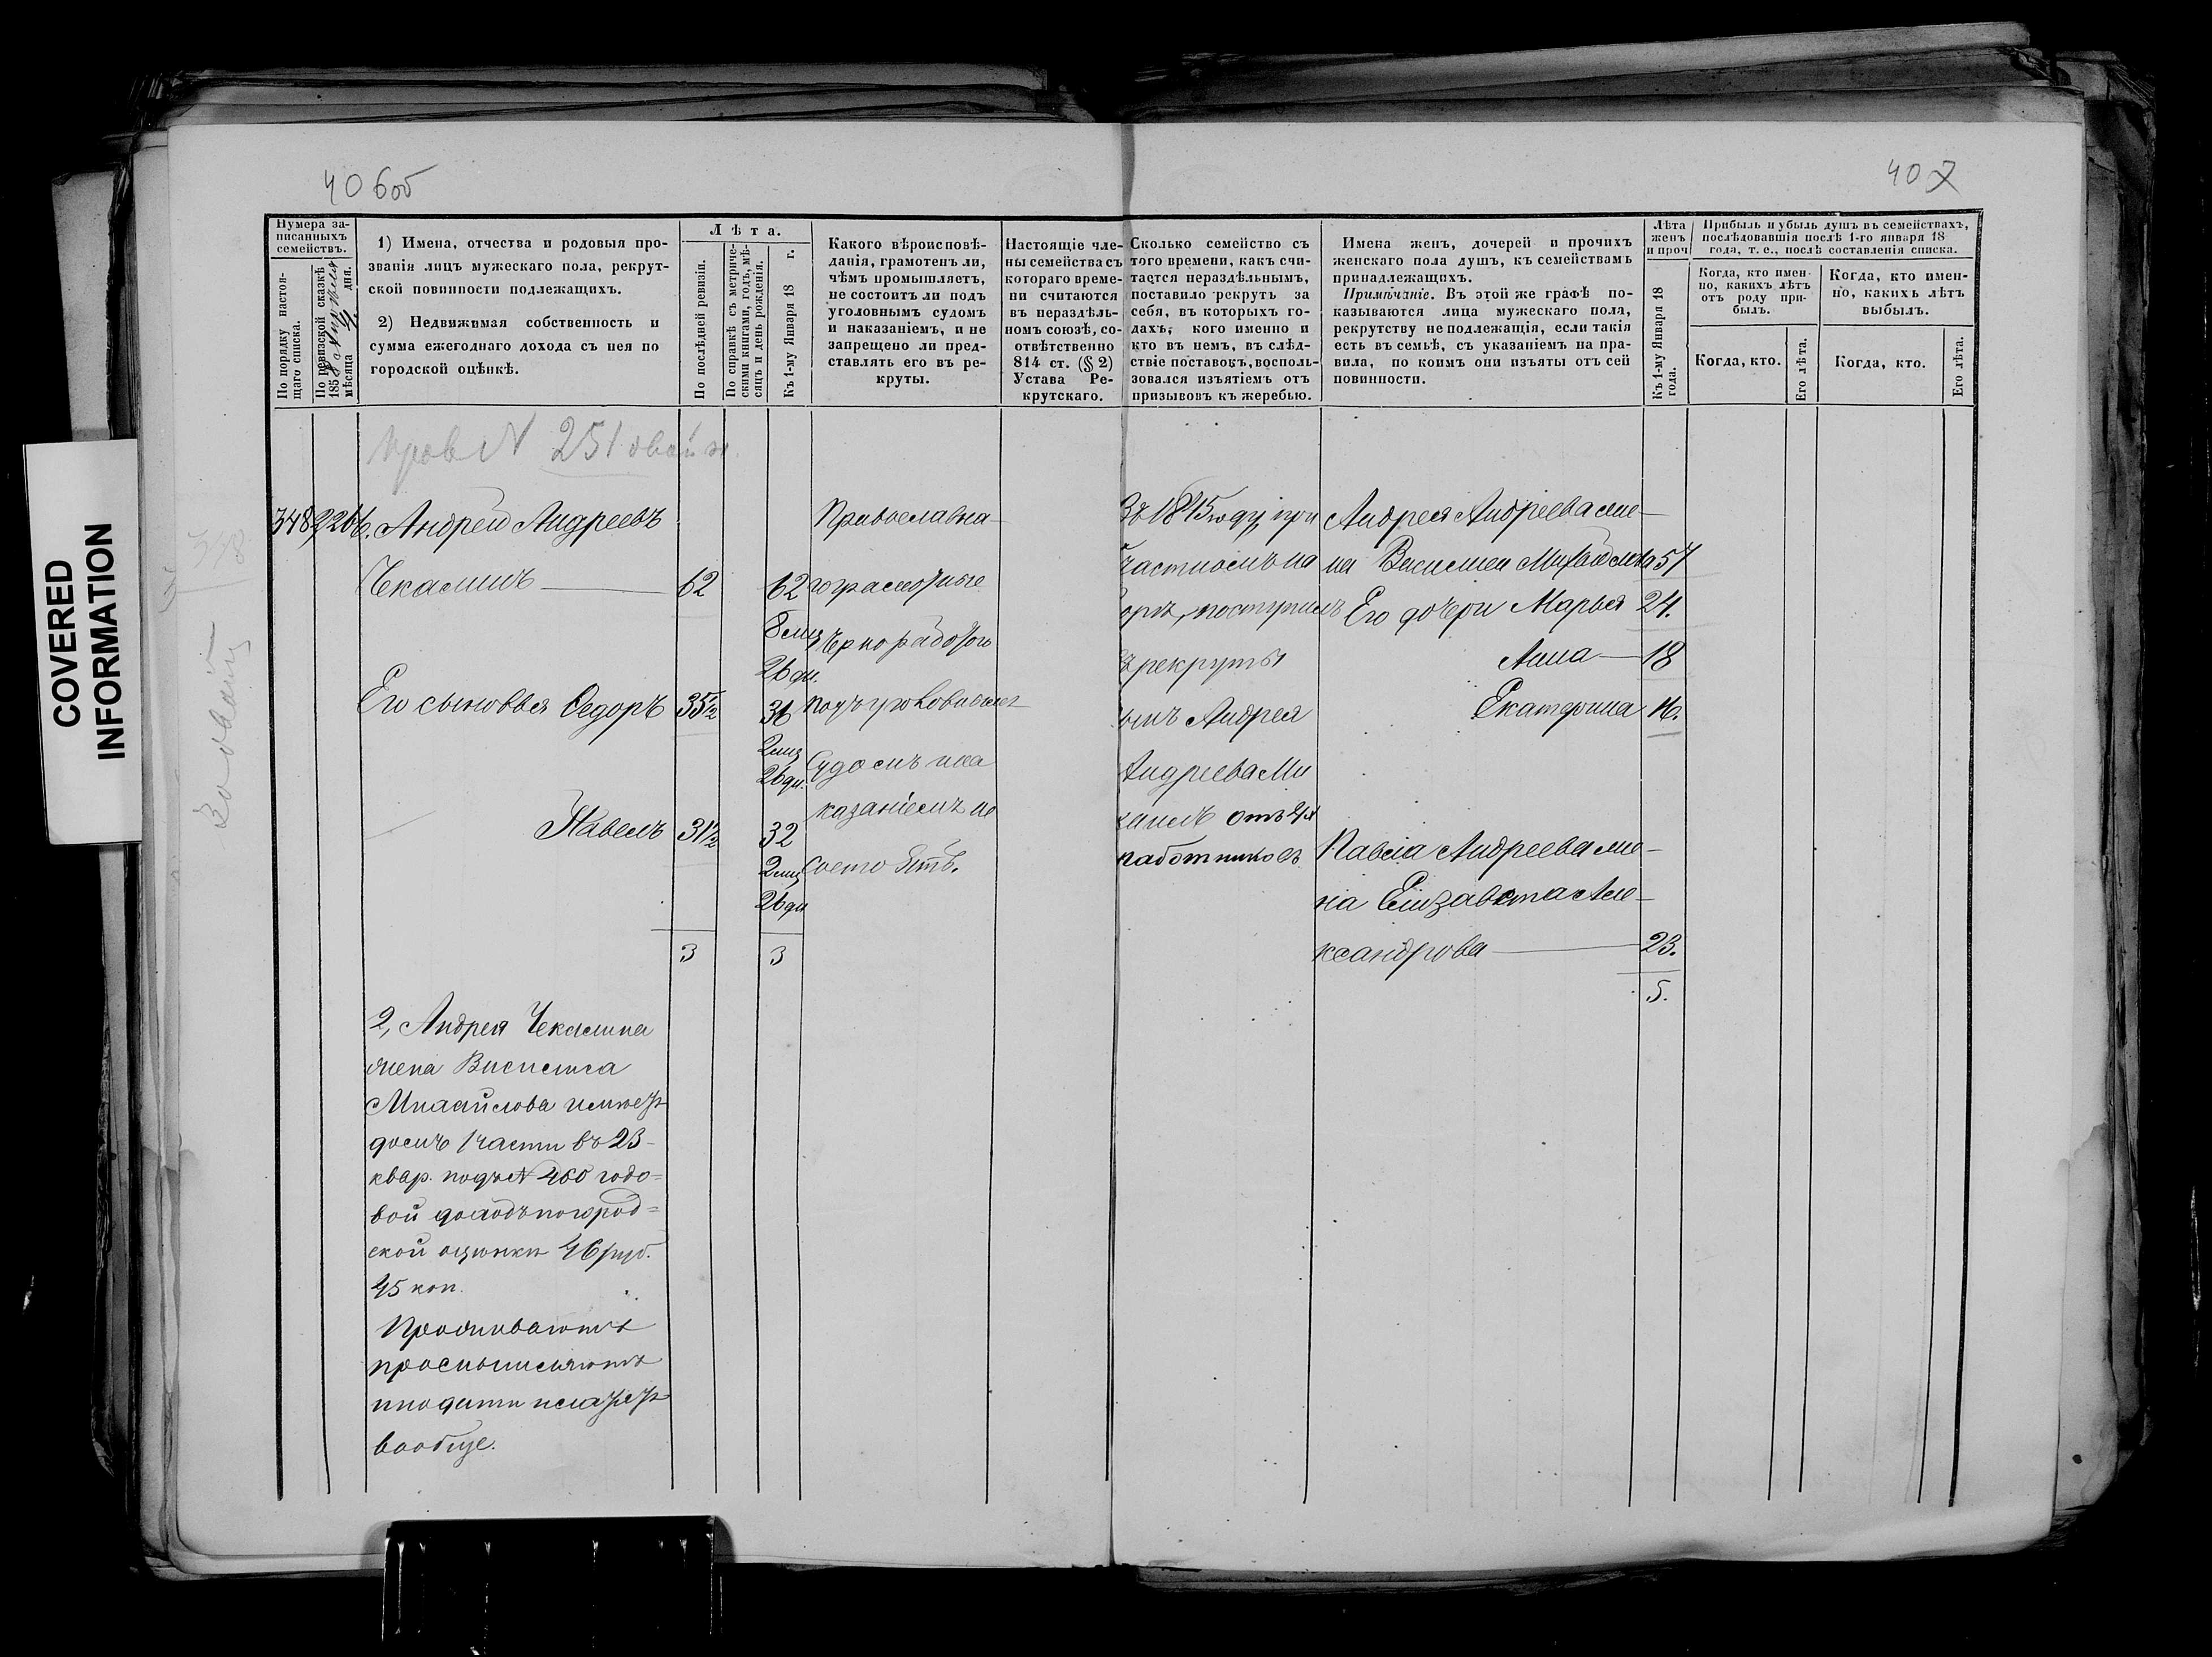 406об
407
COVERED
INFORMATION
Нумера за-
писанныхъ
семействъ.
По порядку настоя-
щаго списка.
По ревизской сказкѣ
185
мѣсяца дня.
1) Имена, отчества и родовыя про-
званія лицъ мужескаго пола, рекрут-
ской повинности подлежащихъ.
2) Недвижимая собственность и
сумма ежегоднаго дохода съ нея по
городской оцѣнкѣ.
Лѣта.
По послѣдней ревизіи.
По справкѣ съ метриче-
скими книгами, годъ, мѣ-
сяцъ и день рожденія.
Къ 1-му Января 18 г.
Какого вѣроисповѣ-
данія, грамотенъ ли,
чѣмъ промышляетъ,
не состоитъ ли подъ
уголовнымъ судомъ
и наказаніемъ, и не
запрещено ли пред-
ставлять его въ ре-
круты.
Настоящіе чле-
ны семейства съ
котораго време-
ни считаются
въ нераздѣль-
номъ союзѣ, со-
отвѣтственно
814 ст. (§ 2)
Устава Ре-
крутскаго.
Сколько семейство съ
того времени, какъ счи-
тается нераздѣльнымъ,
поставило рекрутъ за
себя, въ которыхъ го-
дахъ, кого именно и
кто въ немъ, въ слѣд-
ствіе поставокъ, восполь-
зовался изъятіемъ отъ
призывовъ къ жеребью.
Имена женъ, дочерей и прочихъ
женскаго пола душъ, къ семействамъ
принадлежащихъ.
Примѣчаніе. Въ этой же графѣ по-
казываются лица мужескаго пола,
рекрутству не подлежащія, если такія
есть въ семьѣ, съ указаніемъ на пра-
вила, по коимъ они изъяты отъ сей
повинности.
Лѣта
женъ
и проч
Къ 1-му Января 18
года.
Прибыль и убыль душъ въ семействахъ,
послѣдовавшія послѣ 1-го января 18
года, т. е., послѣ составленія списка.
Когда, кто имен-
но, какихъ лѣтъ
отъ роду при-
былъ.
Когда, кто имен-
но, какихъ лѣтъ
выбылъ.
Когда, кто.
Его лѣта.
Когда, кто.
Его лѣта.
N 251
348 2266. Андрей Андреевъ
Чекалинъ 62 62
8 мц
26 дн.
Его сыновья Ѳедоръ 35½ 36
2 мц
26 дн.
Павелъ 31½ 32
2 мц
26 дн
3 3
Православна-
го грамотные
чернорабочіе
подъ уголовнымъ
судомъ и на
казаніемъ не
состоятъ.
Въ 1845 году, при
частномъ на
борѣ, поступилъ
рекруты
сынъ Андрея
Андреева Ми
хаилъ отъ 4х
работниковъ
Андрея Андреева же-
на Василиса Михайлова 57
Его дочери Марья 24.
Анна 18
Екатерина 16.
Павла Андреева же-
на Елизавета Але-
ксандрова 23.
5.
2, Андрея Чекалина
жена Василиса
Михайлова имѣетъ
домъ 1 части въ 23
квар. подъ N 460 годо-
вой доходъ по город-
ской оцѣнки 46 руб.
45 коп.
Проживаютъ
промышляютъ
и подати платетъ
вообще.